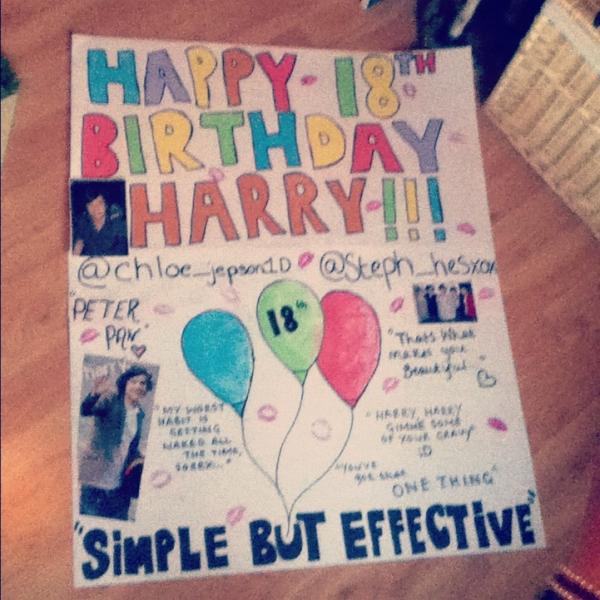 HAPPY 18TH
BIRTHDAY
HARRY!!!
@chloe_jepson1D @Steph_hesxox
"PETER
PAN"
18th
"Thats What
makes you
Beautiful"
"MY WORST
HABIT IS
GETTING
NAKED ALL
THE TIME,
SORRY..."
"HARRY, HARRY
GIMME SOME
OF YOUR GRAVY"
;D
"YOU'VE
GOT THAT
ONE THING"
"SiMPLE BUT EFFECTiVE"